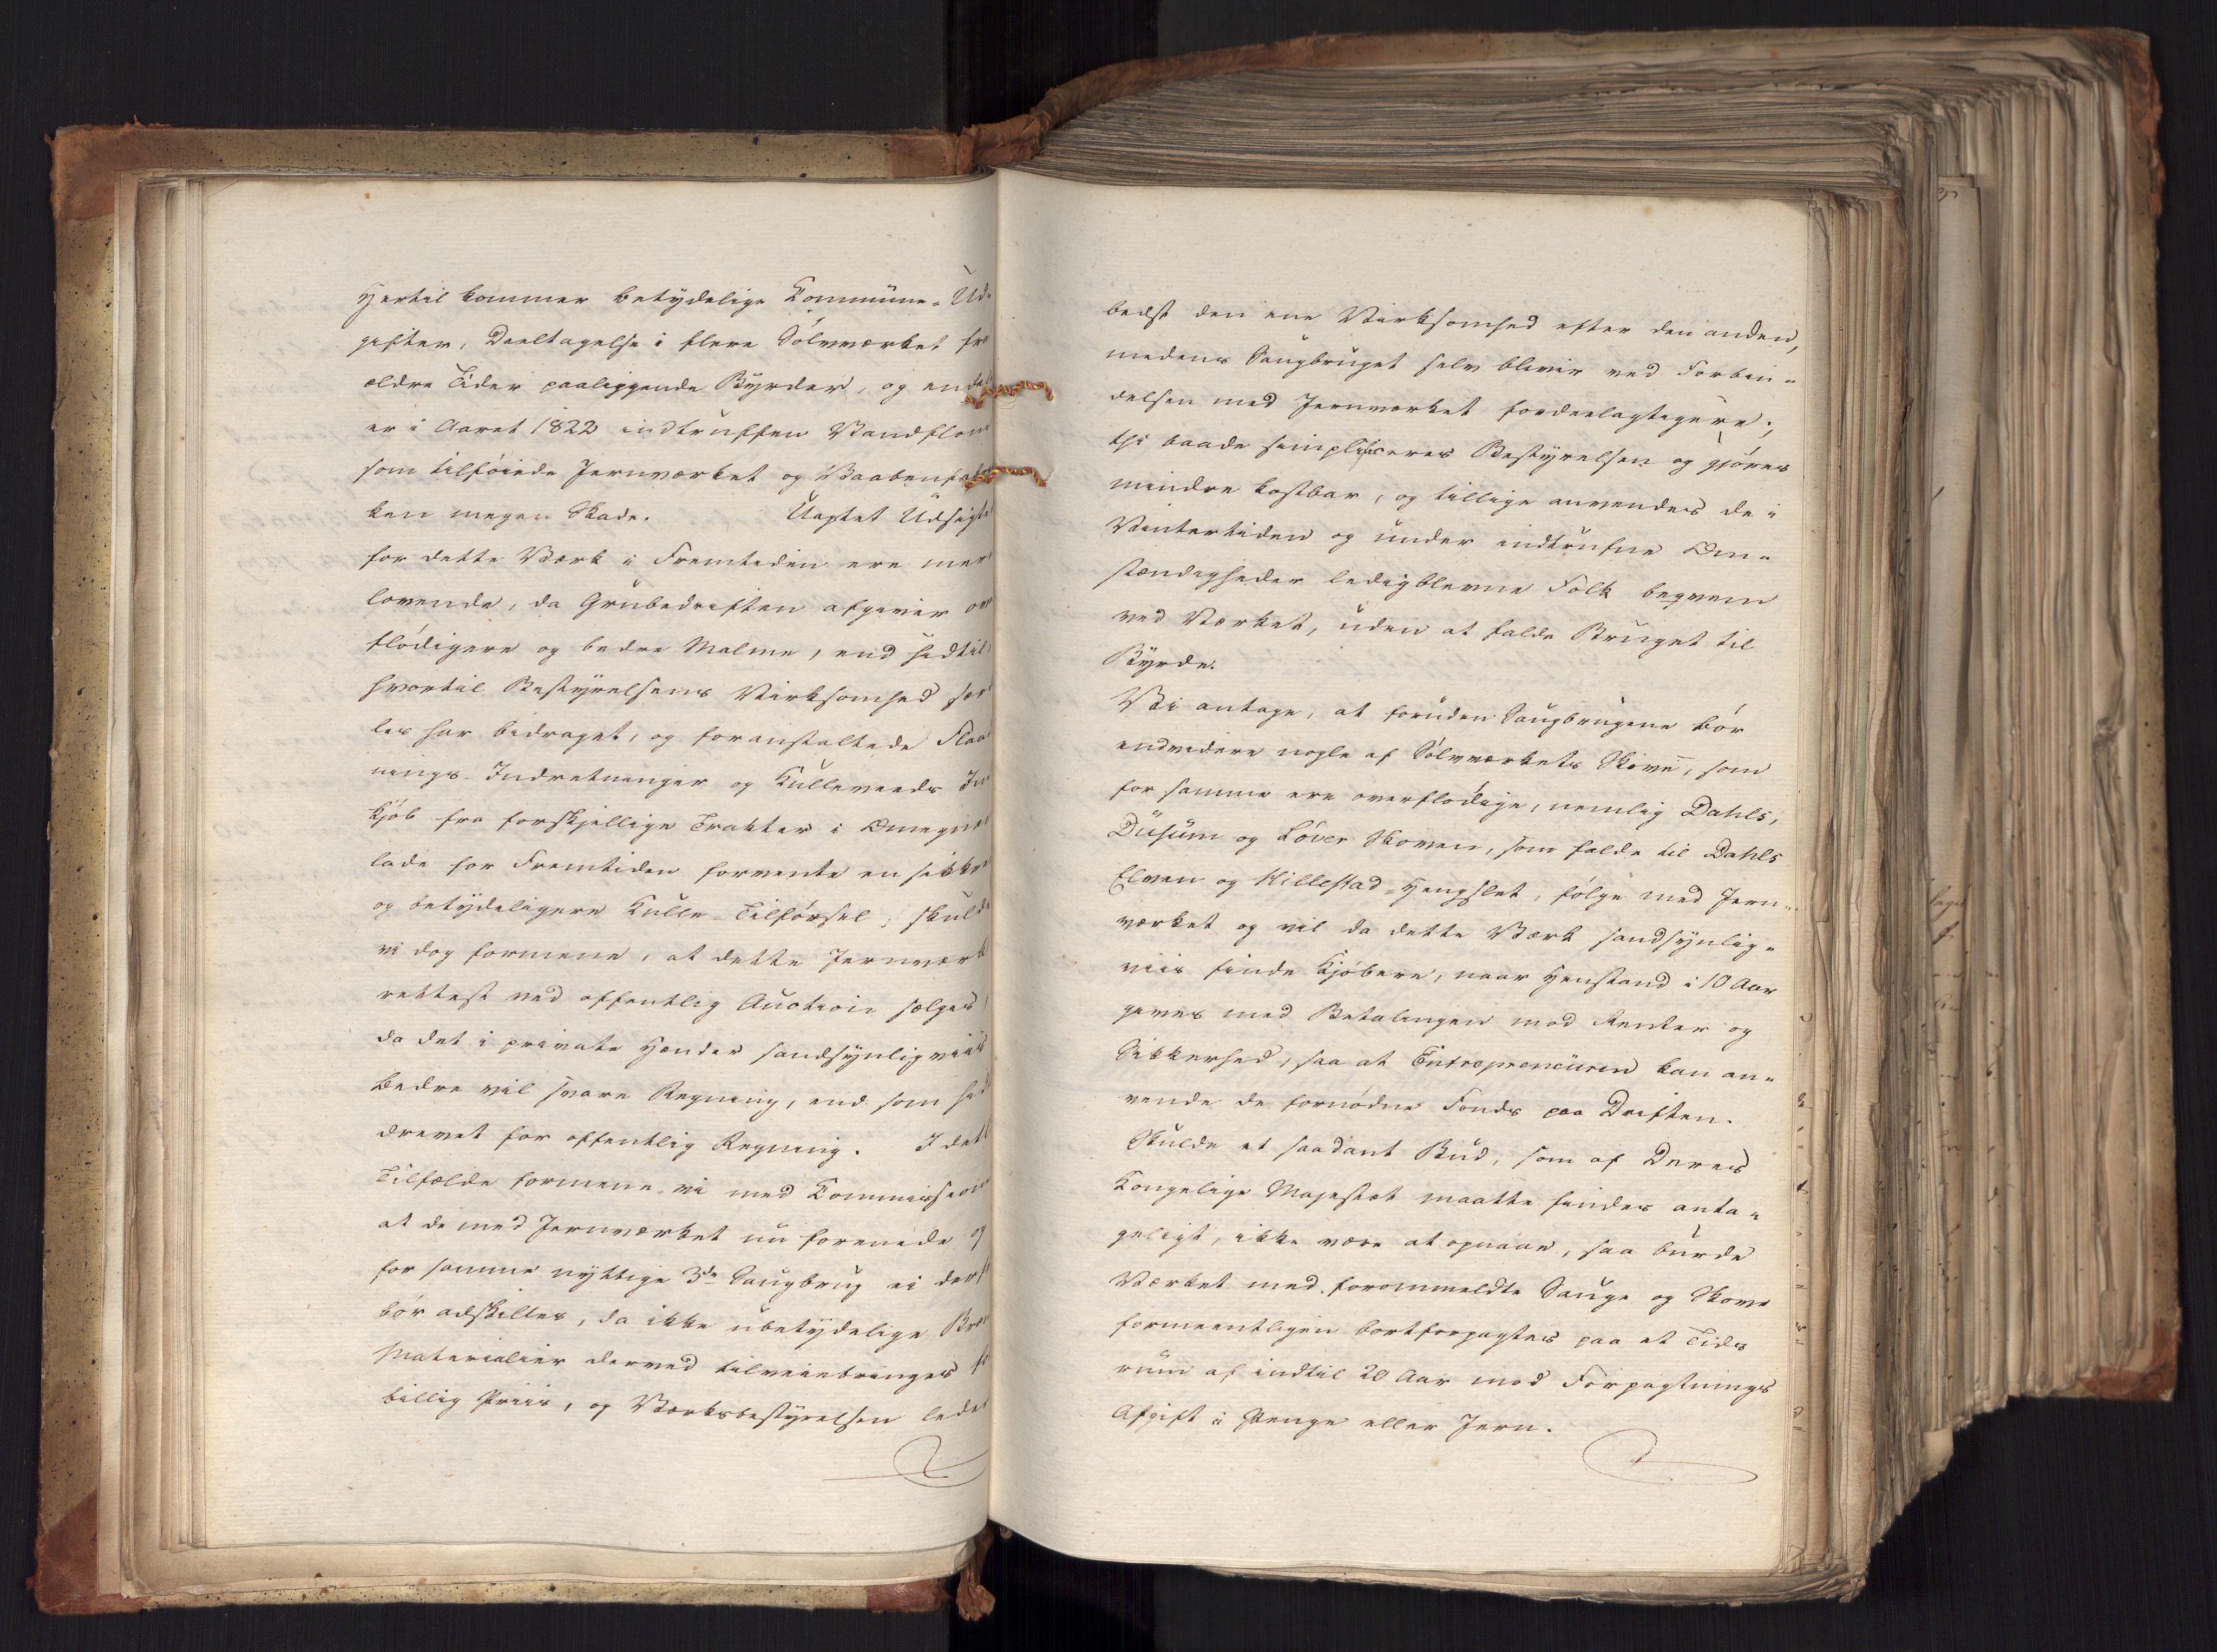 Hertil kommer betydelige Commune-Ud-
gifter, Deeltagelse i flere Sölvværket fra
ældre Tider paaliggende Byrder, og en
er i Aaret 1822 indtruffen Vandflom
som tilföiede Jernværket og Vaabenfa
ken megen Skade. Uagtet Udsigte
for dette Værk i Fremtiden ere mere
lovende, da Grubedriften afgiver over
flödigere og bedre Malme, end hidtil,
hvortil Bestyrelsens Virksomhed sær
les har bidraget, og foranstaltede Flaa
nings-Indretninger og Kulleveeds In
kjöb fra forskjellige Trakter i Omegnen
lade for Fremtiden forvente en sikkre
og betydeligere Kulle-Tilförsel, skulde
vi dog formene, at dette Jernværk
rettest ved offentlig Auction sælges,
da det i private Hænder sandsynligviis
bedre vil svare Regning, end som
drevet for offentlig Regning. I dette
Tilfælde formene vi med Commission
at de med Jernværket nu forenede og
for samme nyttige 3de Saugbrug ei der
bör adskilles, da ikke ubetydelige Bræn
Materialier derved tilveiebringes for
billig Priis, og Værksbestyrelsen leder
bedst den ene Virksomhed efter den anden,
medens Saugbruget selv bliver ved Forbin-
delsen med Jernværket fordeelagtigere;
thi baade simplificeres Bestyrelsen og gjöres
mindre kostbar, og tillige anvendes de i
Vintertiden og under indtrufne Om-
stændigheder ledigblevne Folk beqvem
ved Værket, uden at falde Bruget til
Byrde.
Vi antage, at foruden Saugbrugene bör
endvidere nogle af Sölvværkets Skove, som
for samme ere overflödige, nemlig Dahls,
Dusum og Löver Skoven, som falde til Dahls
Elven og Hillestad-Hengslet, fölge med Jern-
værket og vil da dette Værk sandsynlig-
viis finde Kjöbere, naar Henstand i 10 Aar
gives med Betalingen mod Renter og
Sikkerhed, saa at Entrepreneuren kan an-
vende de fornödne Fonds paa Driften.
Skulde et saadant Bud, som af Deres
Kongelige Majestæt maatte findes anta-
geligt, ikke være at opnaae, saa burde
Værket med forommeldte Sauge og Skove
formeentligen bortforpagtes paa et Tids
rum af indtil 20 Aar mod Forpagtnings
Afgift i Penge eller Jern.